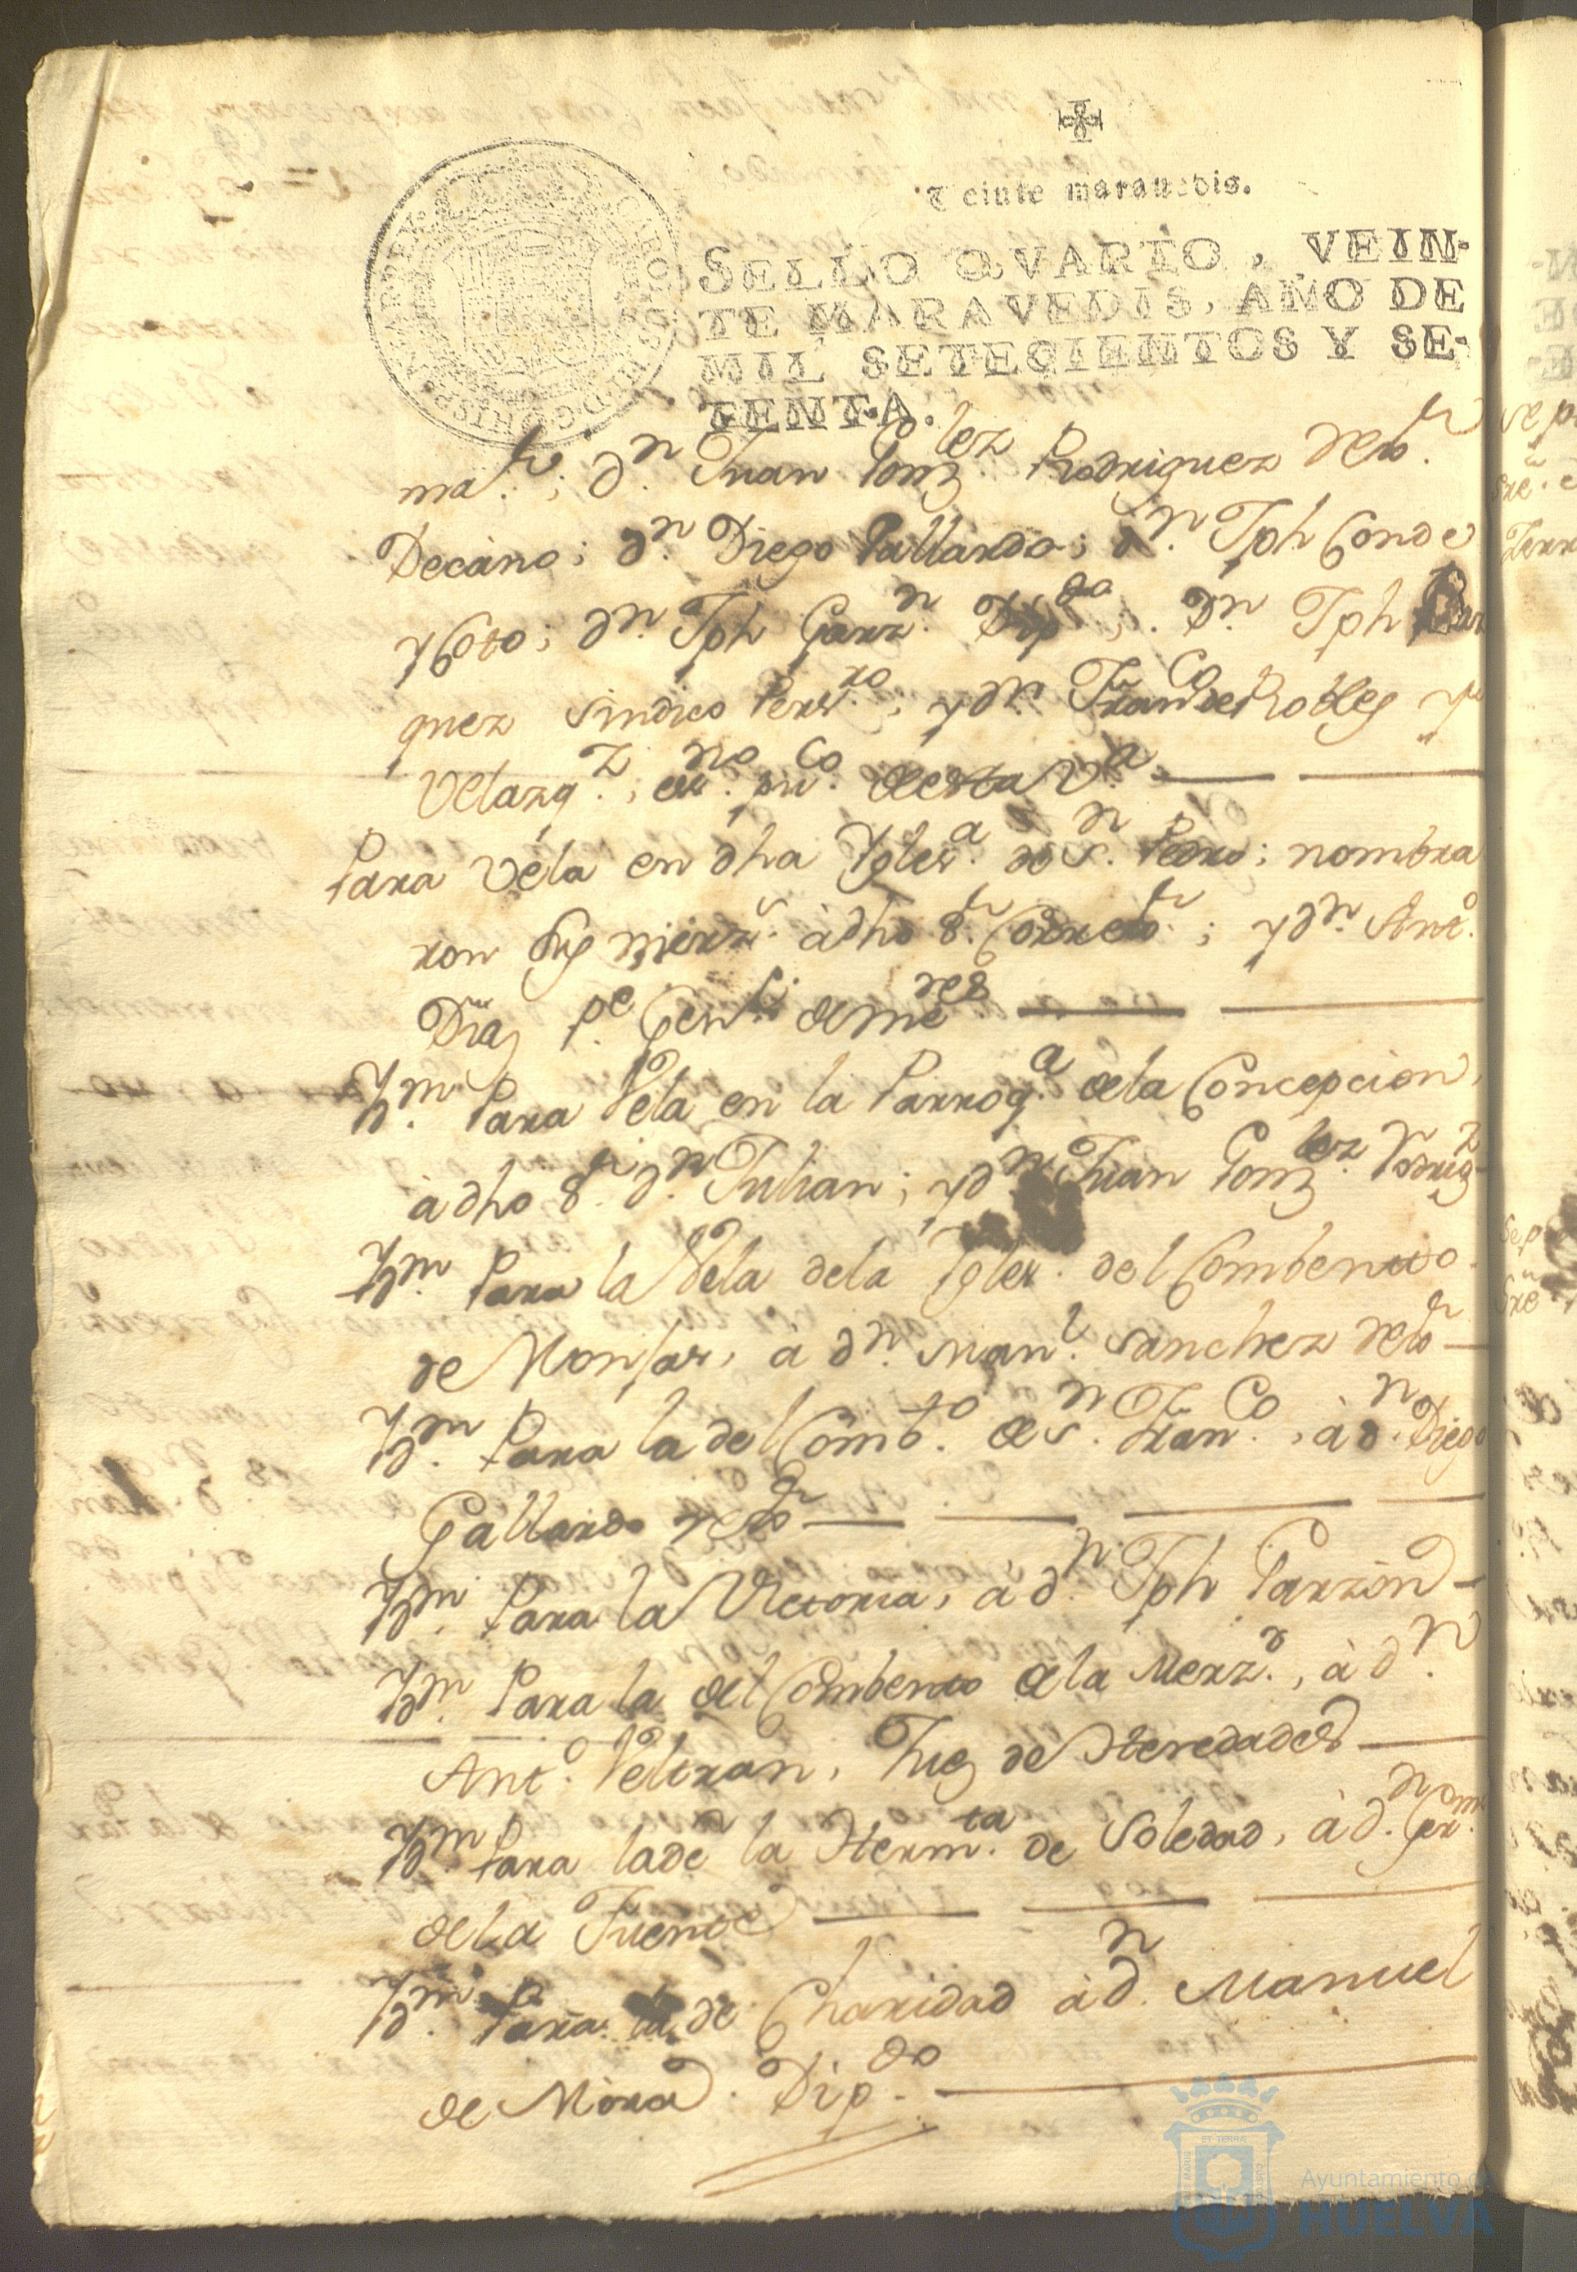 Veinte maravedis.
SELLO QVARTO, VEIN-
TE MARAVEDIS, AÑO DE
MIL SETECIENTOS Y SE-
TENTA.
CAROLUS III D.G. HISPANIAR REX
mor.; Dn. Juan Gonzlez Rodriguez Rexor.
Decano; Dn. Diego Gallardo; Dn. Jph Conde
y Coto; Dn. Jph Garzn. Dipdo; Dn. Jph
guez Sindico Persro; y Dn. Franco de Robles y
Velazqz; esno puco de esta Va.
Para Vela en dha Iglesa. de Sn. Pedro; nombra
ron sus mercs. à dho Sr. Correxor.; y Dn. Anto.
Diaz
Ytm. Para Vela en la Parroqa. de la Concepcion,
à dho Sr. Dn. Julian; y Dn. Juan Gonzlez Rodrigz
Ytm. Para la Vela de la Igles. del Combento
de Monjas, à Dn. Manl. Sanchez Rexor
Ytm. Para la del Combto. de Sn. Franco., à Dn. Diego
Gallardo Rexor
Ytm. Para la Victoria, à Dn. Jph Garzon
Ytm. Para la del Combento de la Merzd., à Dn.
Anto. Veltran, Juez de Heredades
Ytm. Para la de la Hermta. de Soledad, à Dn. Germ.
de la Fuente
Ytm. Para la de Charidad à Dn. Manuel
de Mora. Dipdo.
Ayuntamiento de
HUELVA